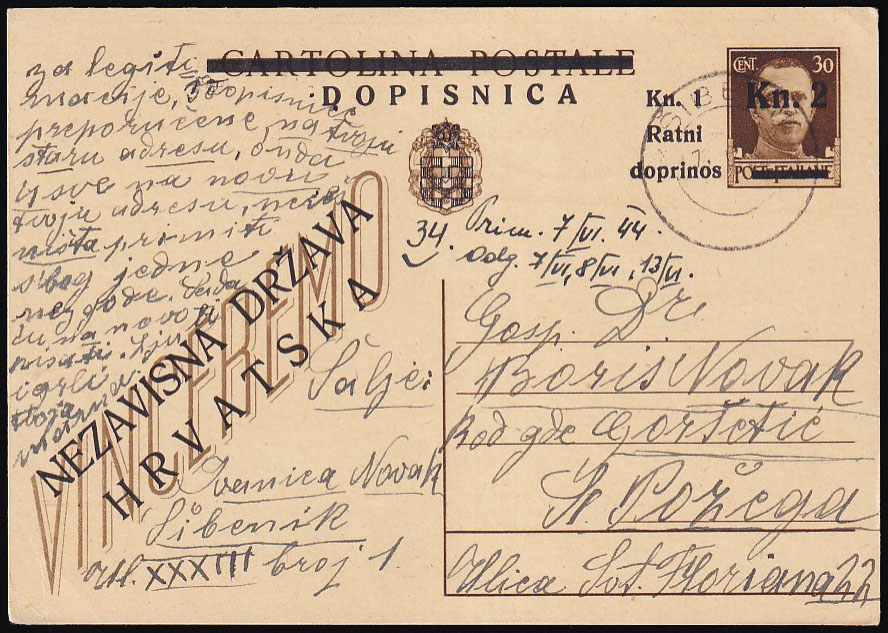 CARTOLINA POSTALE
DOPISNICA
CENT. 30
Kn. 2
POSTE ITALIANE
Kn. 1
Ratni
doprinos
ŠIBE
za legiti
macije, dopisnice
preporučene, na tvoju
staru adresu, onda
sve na novu
tvoju adresu,
ništa primiti
s'bog jedne
nezgode. Sada
ću na novo
pisati. Ljubi
i grli
tvoja
mama
34.
Prim. 7/VI. 44.
Odg. 7/VI, 8/VI, 13/VI.
VINCEREMO
NEZAVISNA DRŽAVA
HRVATSKA
Šalje:
Ivanica Novak
Šibenik
Ul. XXXIII broj 1.
Gosp. Dr.
Boris Novak
kod gđe Goršetić
Sl. Požega
Ulica Svt. Floriana 22